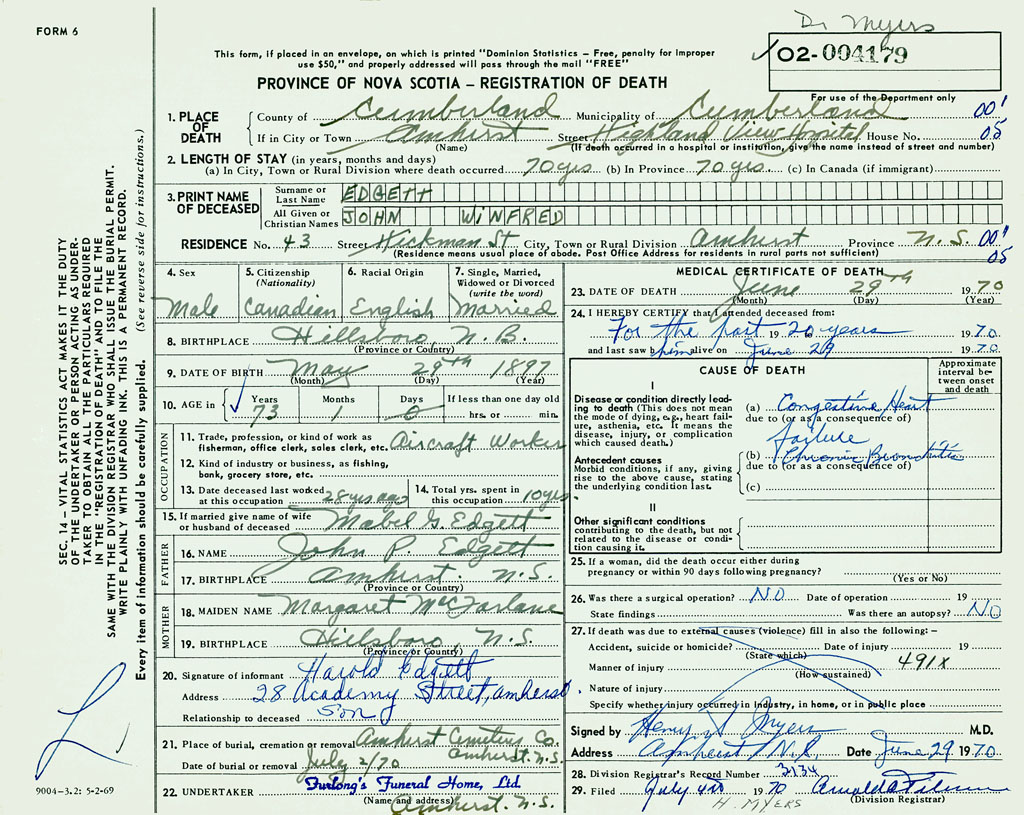 Dr Myers
FORM 6
This form, if placed in an envelope, on which is printed "Dominion Statistics – Free, penalty for improper
use $50," and properly addressed will pass through the mail "FREE"
02-004179
PROVINCE OF NOVA SCOTIA – REGISTRATION OF DEATH
For use of the Department only
1. PLACE OF DEATH
County of Cumberland Municipality of Cumberland 00'
If in City or Town Amherst Street Highland View Hospital House No. 05
(Name) (If death occurred in a hospital or institution, give the name instead of street and number)
2. LENGTH OF STAY (in years, months and days)
(a) In City, Town or Rural Division where death occurred 70 yrs (b) In Province 70 yrs. (c) In Canada (if immigrant)
3. PRINT NAME OF DECEASED
Surname or Last Name EDGETT
All Given or Christian Names JOHN WINFRED
RESIDENCE No. 43 Street Hickman St City, Town or Rural Division Amherst Province N.S. 00'
(Residence means usual place of abode. Post Office Address for residents in rural parts not sufficient) 05
4. Sex Male
5. Citizenship (Nationality) Canadian
6. Racial Origin English
7. Single, Married, Widowed or Divorced (write the word) Married
8. BIRTHPLACE Hillsboro, N.B.
(Province or Country)
9. DATE OF BIRTH May 29th 1897
(Month) (Day) (Year)
10. AGE in Years 73 Months 1 Days 0 If less than one day old
hrs. or min.
OCCUPATION
11. Trade, profession, or kind of work as
fisherman, office clerk, sales clerk, etc. Aircraft Worker
12. Kind of industry or business, as fishing,
bank, grocery store, etc.
13. Date deceased last worked
at this occupation 28 yrs ago
14. Total yrs. spent in
this occupation 10 yrs.
15. If married give name of wife
or husband of deceased Mabel G. Edgett
FATHER
16. NAME John P. Edgett
17. BIRTHPLACE Amherst. N.S.
(Province or Country)
MOTHER
18. MAIDEN NAME Margaret McFarlane
19. BIRTHPLACE Hillsboro, N.S.
(Province or Country)
20. Signature of informant Harold Edgett
Address 28 Academy Street, Amherst.
Relationship to deceased Son
21. Place of burial, cremation or removal Amherst Cemetery Co.
Amherst. N.S.
Date of burial or removal July 2/70
22. UNDERTAKER Furlong's Funeral Home, Ltd.
(Name and address) Amherst. N.S.
MEDICAL CERTIFICATE OF DEATH
23. DATE OF DEATH June 29th 1970
(Month) (Day) (Year)
24. I HEREBY CERTIFY that I attended deceased from:
For the past 19 20 years 1970
and last saw him alive on June 29 1970
CAUSE OF DEATH
Approximate interval between onset and death
I
Disease or condition directly leading to death (This does not mean the mode of dying, e.g., heart failure, asthenia, etc. It means the disease, injury, or complication which caused death.)
(a) Congestive Heart
due to (or as a consequence of)
failure
Antecedent causes
Morbid conditions, if any, giving rise to the above cause, stating the underlying condition last.
(b) Chronic Bronchitis
due to (or as a consequence of)
(c)
II
Other significant conditions
contributing to the death, but not related to the disease or condition causing it.
25. If a woman, did the death occur either during
pregnancy or within 90 days following pregnancy?
(Yes or No)
26. Was there a surgical operation? NO Date of operation 19
State findings Was there an autopsy? NO
27. If death was due to external causes (violence) fill in also the following: –
Accident, suicide or homicide? Date of injury 19
(State which)
Manner of injury 491X
(How sustained)
Nature of injury
Specify whether injury occurred in industry, in home, or in public place
Signed by Henry Myers M.D.
Address Amherst N.S. Date June 29 1970
28. Division Registrar's Record Number 3134
29. Filed July 4th 1970
H. MYERS (Division Registrar)
SEC. 14 – VITAL STATISTICS ACT MAKES IT THE DUTY
OF THE UNDERTAKER OR PERSON ACTING AS UNDER-
TAKER TO OBTAIN ALL THE PARTICULARS REQUIRED
IN THE "REGISTRATION OF DEATH" AND TO FILE THE
SAME WITH THE DIVISION REGISTRAR WHO SHALL ISSUE THE BURIAL PERMIT.
WRITE PLAINLY WITH UNFADING INK. THIS IS A PERMANENT RECORD.
Every item of information should be carefully supplied. (See reverse side for instructions.)
9004-3.2: 5-2-69